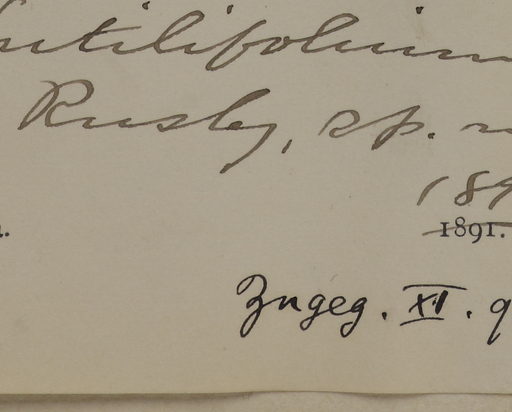 utilifolium
Rusby, sp. n
189
1891.
Zngeg. XI. 9